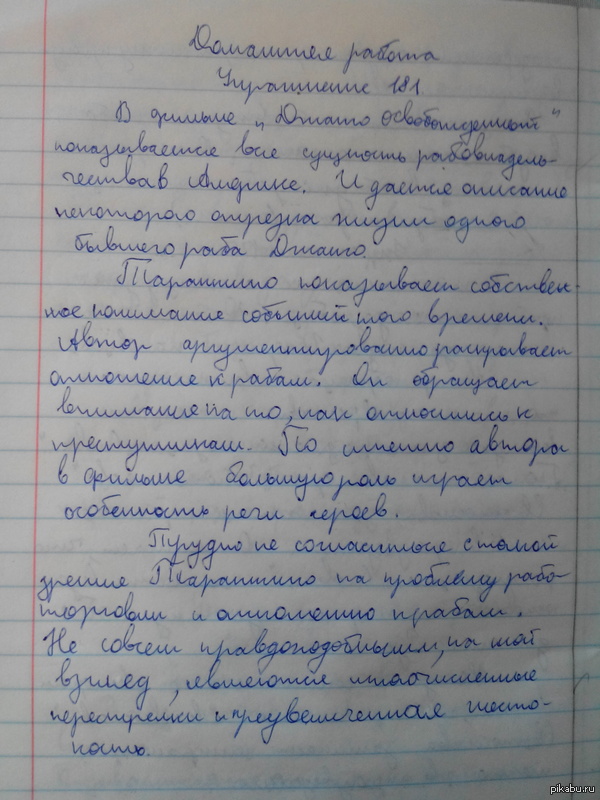 Домашняя работа
Упражнение 181
В фильме „Джанго освобожденный"
показывается вся сущность рабовладель-
чества в Америке. И дается описание
некоторого отрезка жизни одного
бывшего раба Джанго.
Тарантино показывает собствен-
ное понимание событий того времени.
Автор аргументированно раскрывает
отношение к рабам. Он обращает
внимание на то, как относились к
преступникам. По мнению автора
в фильме большую роль играет
особенность речи героев.
Трудно не согласиться с точкой
зрения Тарантино на проблему рабо-
торговли и отношению к рабам.
Не совсем правдоподобными, на мой
взгляд, являются многочисленные
перестрелки и преувеличенная жесто-
кость.
pikabu.ru